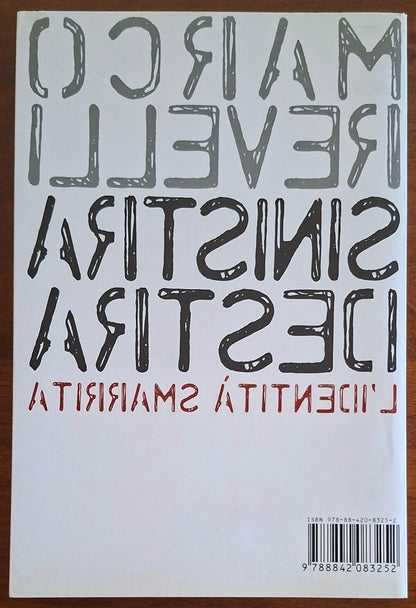 MARCO
REVELLI
SINISTRA
DESTRA
L'IDENTITÀ SMARRITA
ISBN 978-88-420-8325-2
9 788842 083252